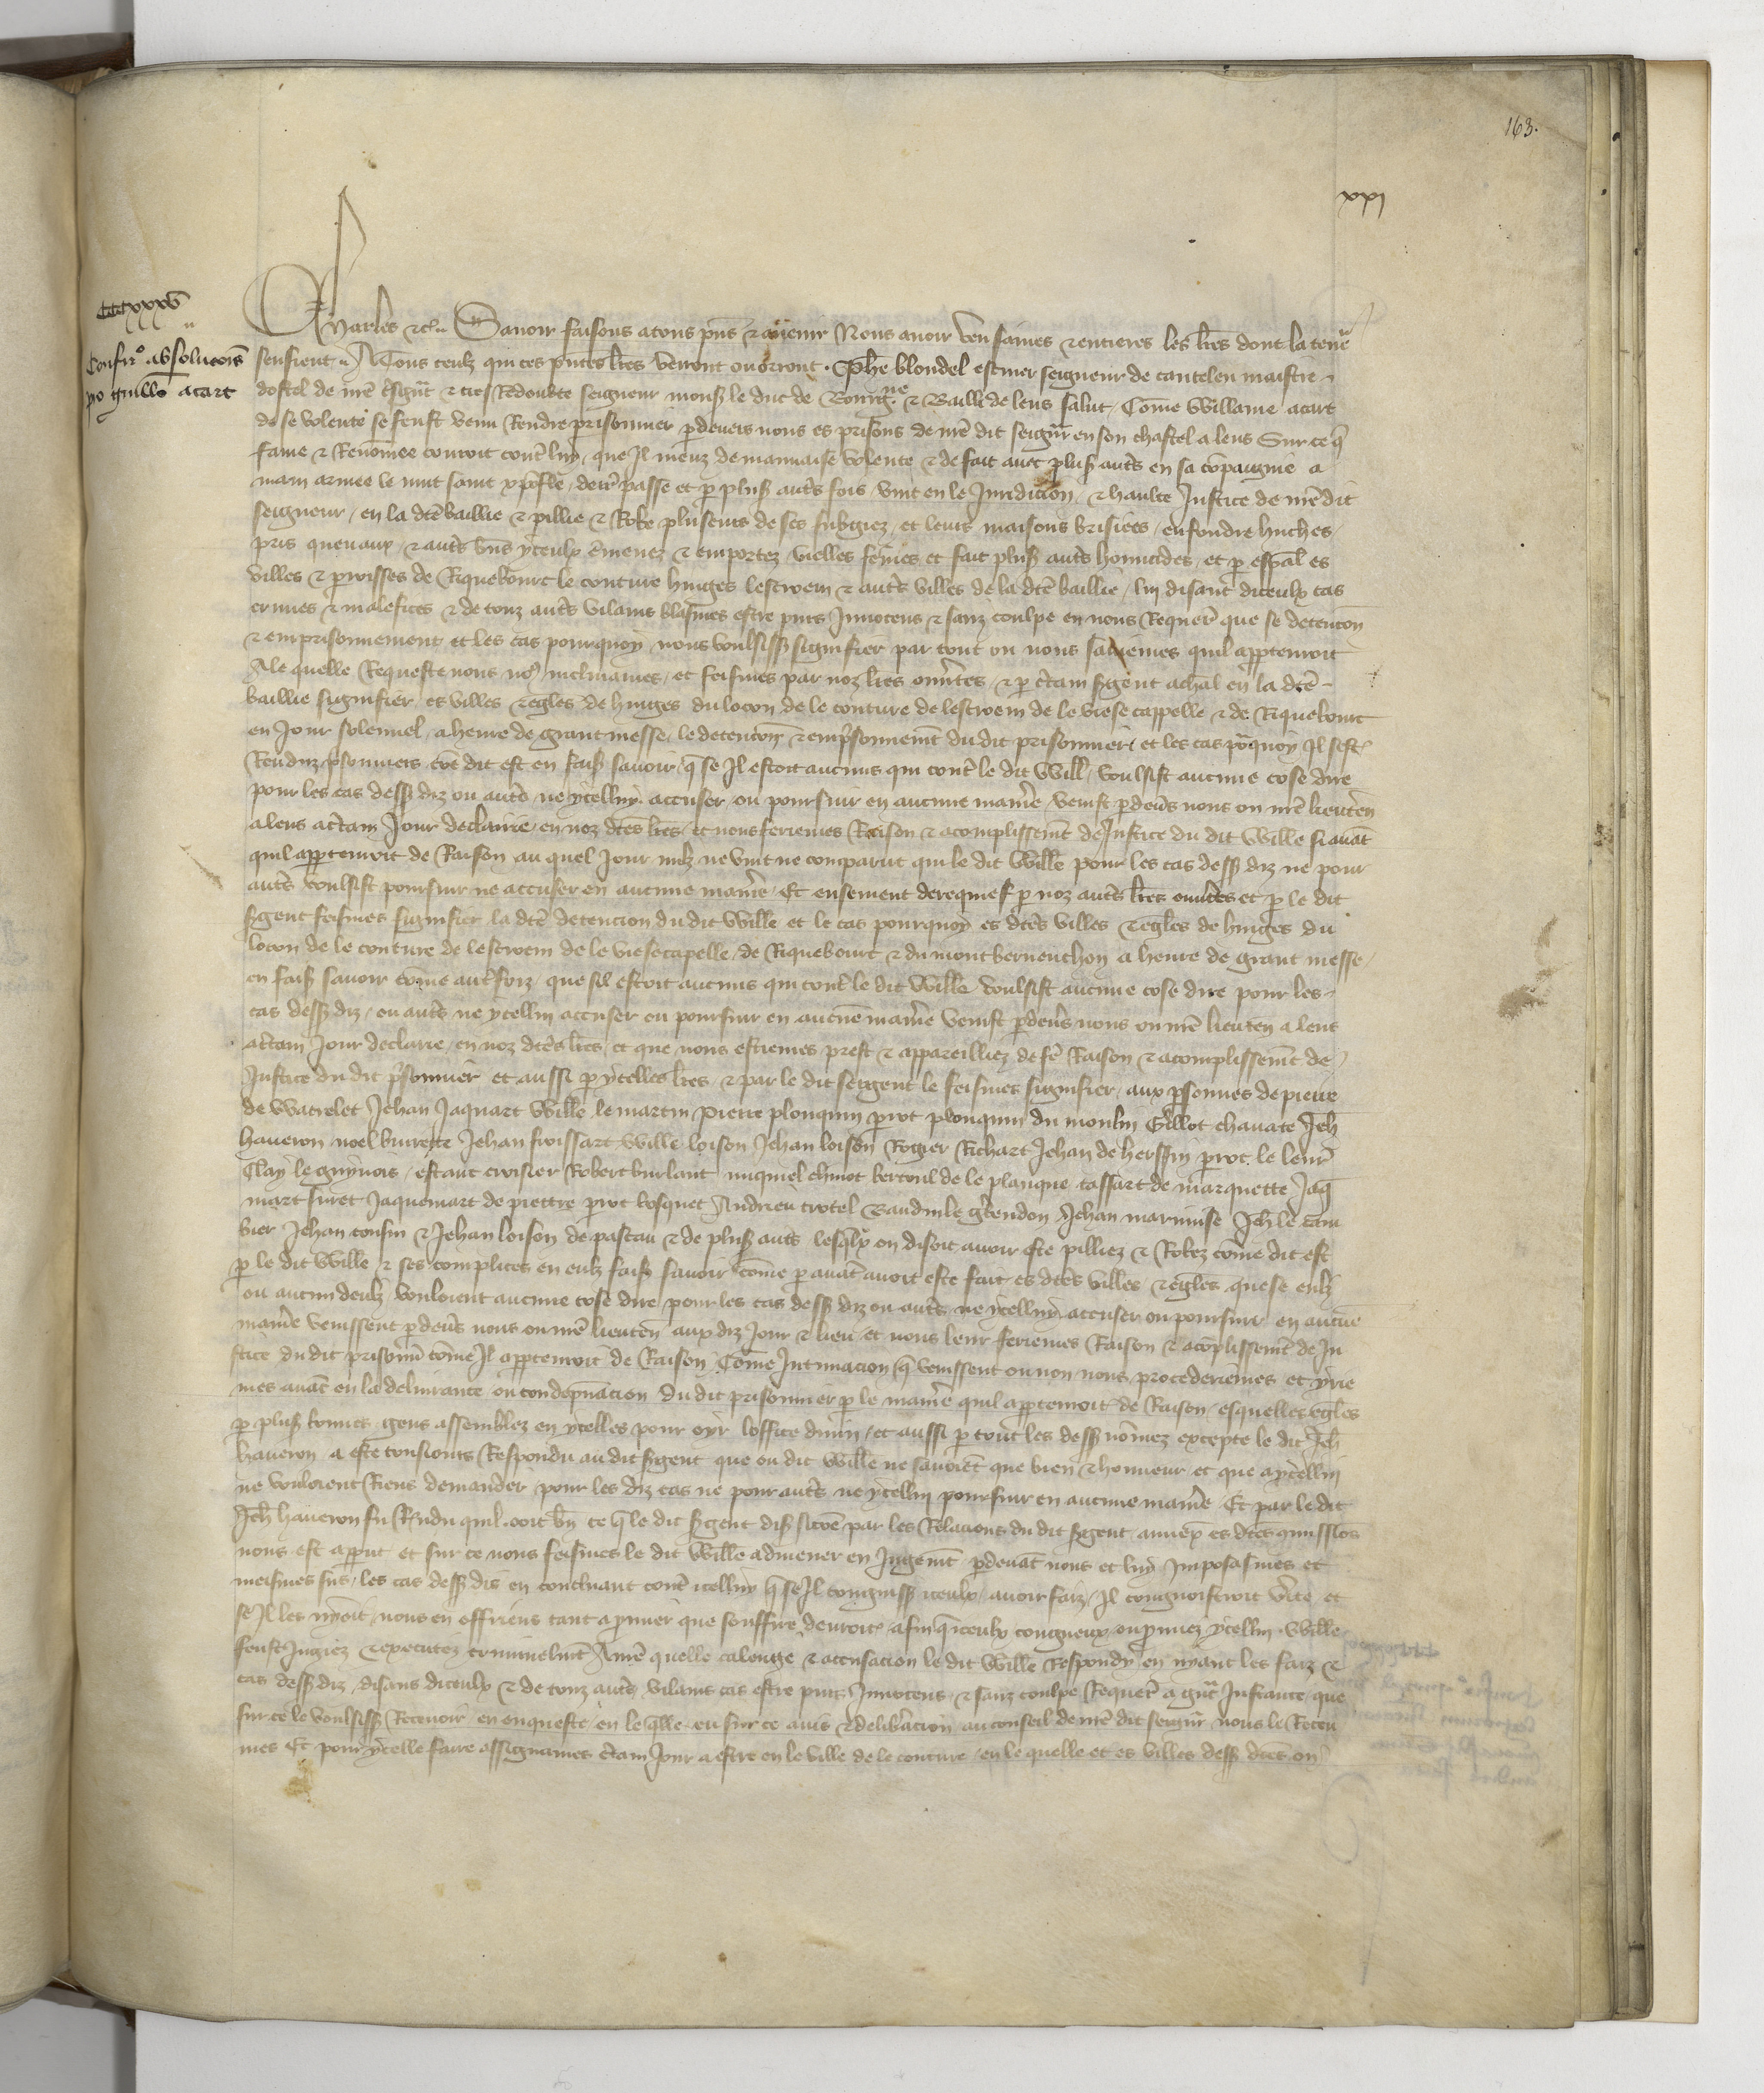 163.
xxj
CCCxxxv
Confirº absolucois
po Guillo acart
Charles etc. Savoir faisons a tous pns et avenir Nous avoir veu saines et entieres les lres dont la teneur
sensuient A Tous ceulz qui ces pntes lres verront ou orront Phe blondel escuier seigneur de cantelen maistre
dostel de nre tsigur et tres Redoubte seigneur mons le duc de Bourgne et Bailli de lens salut Come Willame acart
de se volente se feust venu Rendre prisonnier pdevers nous es prisons de nre dit seigur en son chastel a lens Sur ce q
fame et Renomee couroit contre luy, que Il meuz de mauvaise volente et de fait avec plus autres en sa copaignie a
main armee le nuit saint xpofle, derr passe et p plus autres fois, vint en le Juridicion, et haulte Justice de nre dit
seigneur, en la dte baillie et pillie et Robe pluseurs de ses subgiez, et leurs maisons brisiees, enfondre huches,
pris quevaux, et autres bns yceulx emenez et emportez, viollees femes et fait plus autres homicides, et p espal es
villes et parroisses de Riquebourc le couture hinges lescoem et autres villes de la dte baillie, lui disant diceulx cas
crimes et malefices et de touz autres vilains blasmes estre purs Innocens et sanz coulpe en nous Requert que se detencon
et emprisonnement et les cas pourquoy nous voulsiss signifier par tout ou nous sariemes quil appartenroit
A le quelle Requeste nous no inclinasmes, et feismes par noz lres ouvertes, et p certain sgent achal en la dte
baillie signifier es villes et egles de hinges du locon de le couture de lescoem de le viese cappelle et de Riquebourc
en Jour solennel, a heure de grant messe, le detencon et emprisonnemt du dit prisonnier, et les cas pour quoy Il sest
Renduz prisonniers come dit est en fais savoir, q se Il estoit aucuns qui contre le dit Will, voulsist aucune cose dire
pour les cas dess diz ou autres ne ycelluy accuser, ou poursuir en aucune maniere, venist pdevs nous ou nre lieuten
a lens a certain Jour declairie, en noz dtes lres, et nous feriemes Raison et acomplissemt de Justice du dit Wille si avat
quil appartenroit de Raison au quel Jour nulz ne vint ne comparut qui le dit Wille pour les cas dess diz ne pour
autres voulsist poursuir ne accuser en aucune maniere. Et ensement derequief p noz autres lres ouvtes et p le dit
sgent feismes signifier la dte detencion du dit Wille et le cas pourquoy es dtes villes et egles de hinges du
locon de le couture de lescoem de le viesecapelle, de Riquebourc et du mont bernenchon a heure de grant messe,
en fais savoir come autrefoiz, que sil estoit aucuns qui contre le dit Wille voulsist aucune cose dire pour les
cas dess diz, ou autres ne ycelluy accuser ou poursuir en aucune maniere venist pdevs nous ou nre lieuten a lens
a certain Jour declarie, en noz dtes lres, et que nous estiemes prest et appareilliez de fe Raison et acomplissemt de
Justice du dit prisonnier et aussi p ycelles lres, et par le dit sergent le feismes signifier, aux psonnes de pierre
de Watrelet Jehan Jaquart Wille le martin pierre plonquin prot plonquin du moulin Gillot chavate Jeh
haveron noel burette Jehan froissart Wille loison Jehan loison Rogier Richart Jehan de herssin prot le leur
Clay le guynois, estant croisier Robert burlant miquiel clmot bertoul de le planque tassart de marquette Jaq
mart furet Jaquemart de prettre prot bosquet Andrieu trotel Baudin le grendon Jehan marmuse Jeh le cam
bier Jehan cousin et Jehan loison de pastau et de plus autres lesqlx on disoit avoir este pilliez et Robez come dit est
p le dit Wille et ses complices en eulz fais savoir come p avat avoit este fait es dtes villes et egles que se eulz
ou aucun deulz vouloient aucune cose dire pour les cas dess diz ou autres ne ycelluy accuser ou poursuir en aucune
maniere venissent pdevs nous ou nre lieuten aux diz Jour et lieu et nous leur feriemes Raison et acoplissemt de Ju
stice du dit prisonnier come Il appartenroit de Raison Come Intimacion q venissent ou non nous procederiemes et yrie
mes avat en la delivrance ou condepnacion du dit prisonnier p le maniere quil appartenroit de Raison, esquelles egles
p plus bonnes gens assemblez en ycelles pour oyr loffice divin, et aussi p tout les dess nomez excepte le dit Jeh
haveron a este tousiours Respondu au dit sgent que ou dit Wille ne savoiet que bien et honneur et que a ycelluy
ne vouloient Riens demander pour les diz cas ne pour autres ne ycelluy poursuir en aucune maniere Et par le dit
Jeh haveron fu Rndu quil ooit bn ce q le dit sgent dis si come par les Relacions du dit sgent annex es dtes comissios
nous est apparut et sur ce nous feismes le dit Wille admener en Jugemt pdevat nous et luy Imposasmes et
meismes sus, les cas dess dis en concluant contre icelluy q se Il congnuiss iceulx avoir faiz, Il congnoistroit verite, et
se Il les nyoit, nous en offriens tant a prouver que souffire devroit, afin q iceulx congneux ou prouvez ycelluy Wille
feust Jugiez et executez criminelmt A me quelle calenge et accusacion le dit Wille Respondy en nyant les faiz et
cas dess diz, disans diceulx et de touz autres vilains cas estre purs, Innocens, et sanz coulpe Requert a grt Instance que
sur ce le voulsiss Recevoir en enqueste en le qlle eu sur ce avis et deliberacion au conseil de nre dit seigur nous le Receu
mes Et pour ycelle faire assignames certain Jour a estre en le ville de le couture, en le quelle et es villes dess dtes on